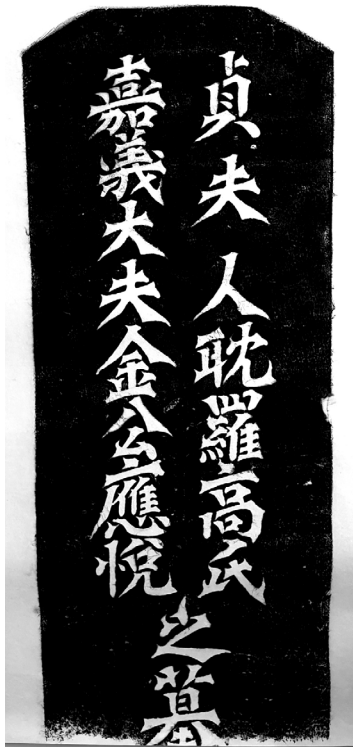 貞夫人耽羅高氏
嘉義大夫金公應悅
之墓